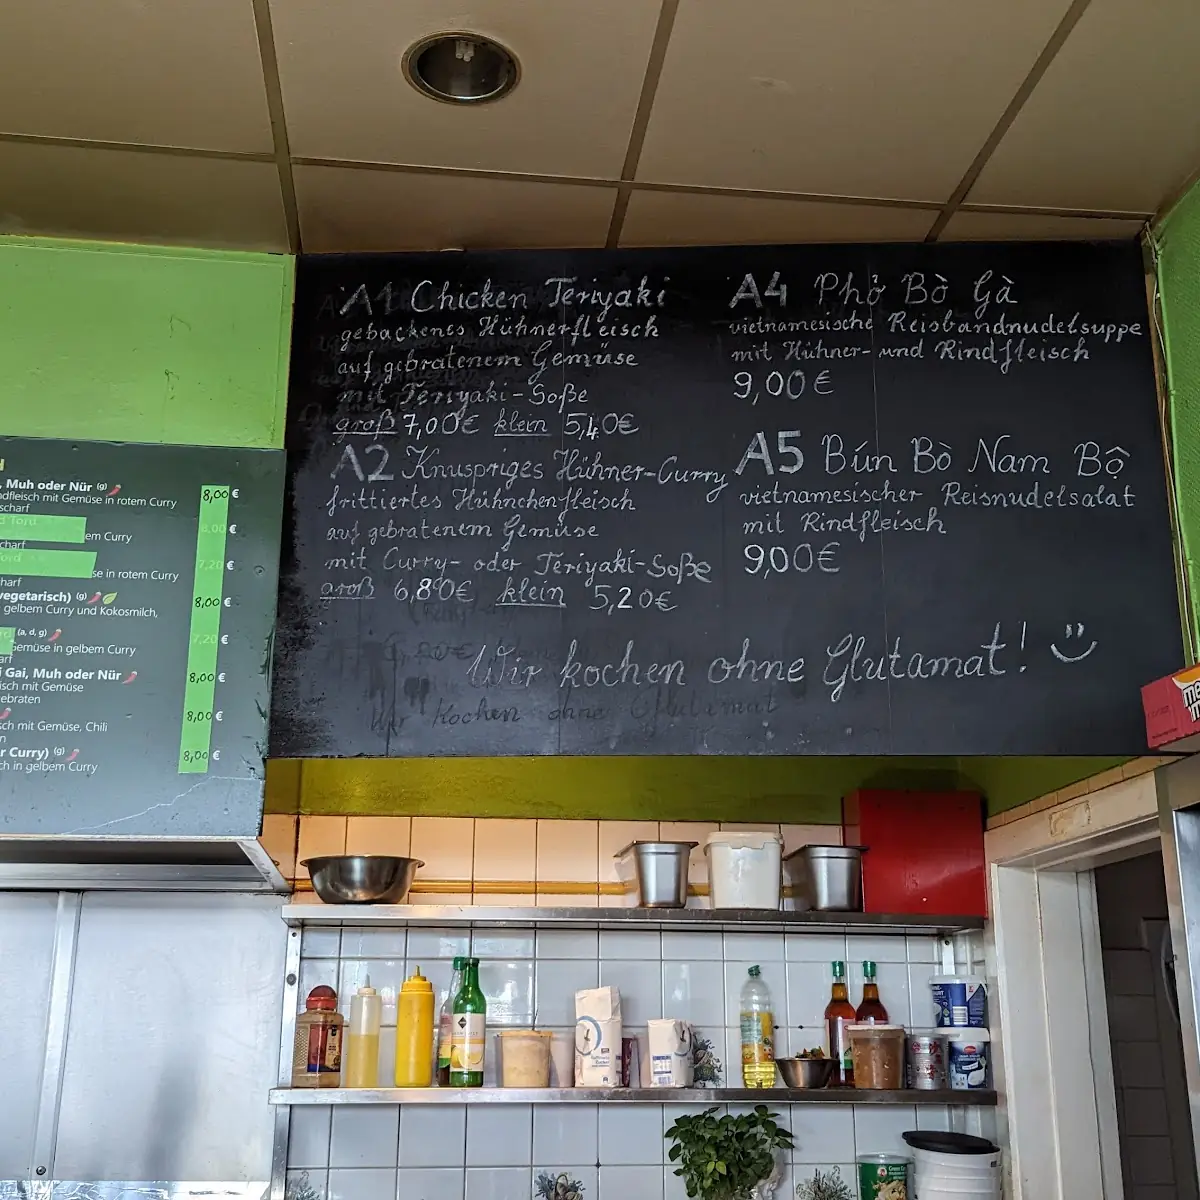 A1 Chicken Teriyaki
gebackenes Hühnerfleisch
auf gebratenem Gemüse
mit Teriyaki-Soße
groß 7,00€ klein 5,40€
A2 Knuspriges Hühner-Curry
frittiertes Hühnchenfleisch
auf gebratenem Gemüse
mit Curry- oder Teriyaki-Soße
groß 6,80€ klein 5,20€
A4 Phở Bò Gà
vietnamesische Reisbandnudelsuppe
mit Hühner- und Rindfleisch
9,00€
A5 Bún Bò Nam Bộ
vietnamesischer Reisnudelsalat
mit Rindfleisch
9,00€
Wir kochen ohne Glutamat!
Wir kochen ohne Glutamat
, Muh oder Nür (g) 8,00 €
ndfleisch mit Gemüse in rotem Curry
scharf
Tord 6,00 €
em Curry
scharf
ord 7,20 €
se in rotem Curry
harf
vegetarisch) (g) 8,00 €
gelbem Curry und Kokosmilch,
rd (a, d, g) 7,20 €
Gemüse in gelbem Curry
arf
i Gai, Muh oder Nür 8,00 €
isch mit Gemüse
ebraten
8,00 €
sch mit Gemüse, Chili
n
r Curry) (g) 8,00 €
ch in gelbem Curry